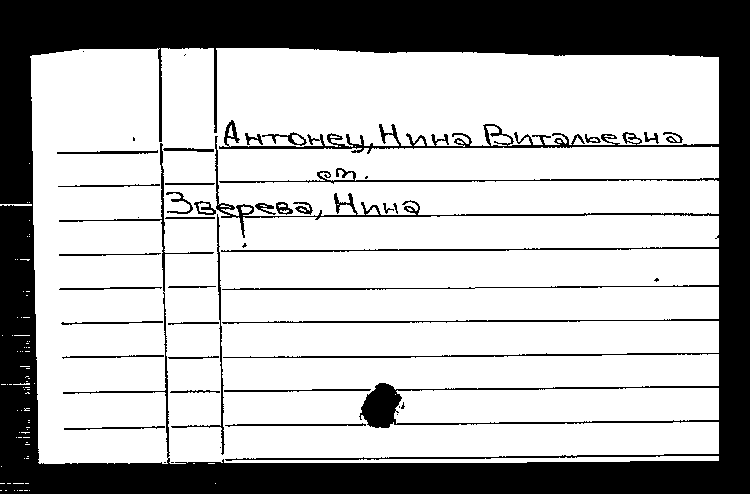 Антонец, Нина Витальевна
см.
Зверева, Нина